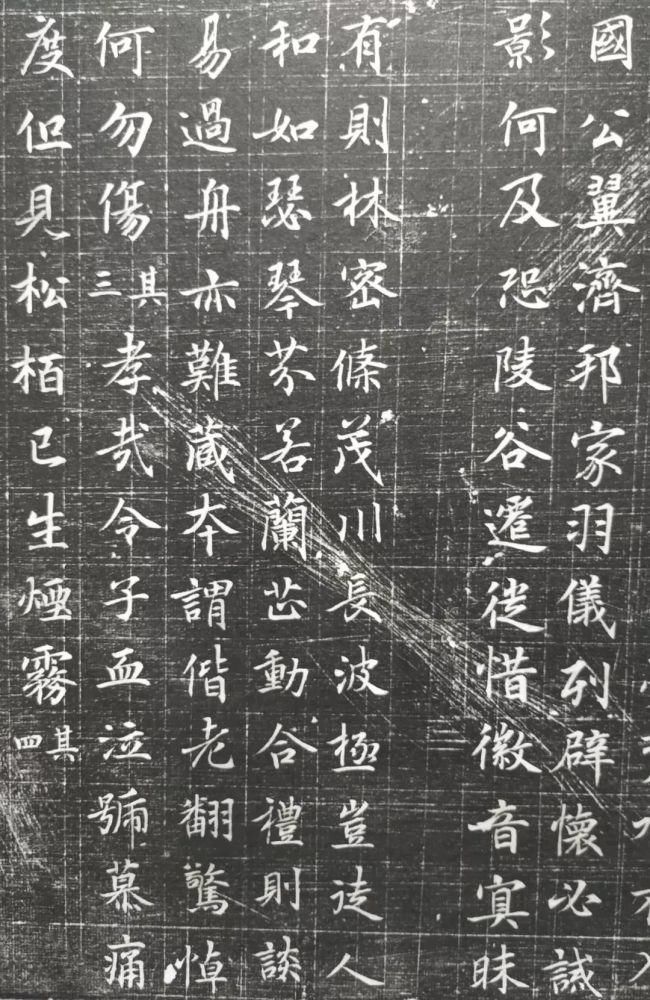 國公翼濟邦家羽儀列辟懷必誠
影何及恐陵谷遷徙惜徽音冥昧
有則林密條茂川長波極豈人
和如瑟琴芬若蘭芷動合禮則談
易過舟亦難藏本謂偕老翻驚悼
何勿傷其三孝哉令子血泣號慕痛
度但見松栢已生煙霧其四